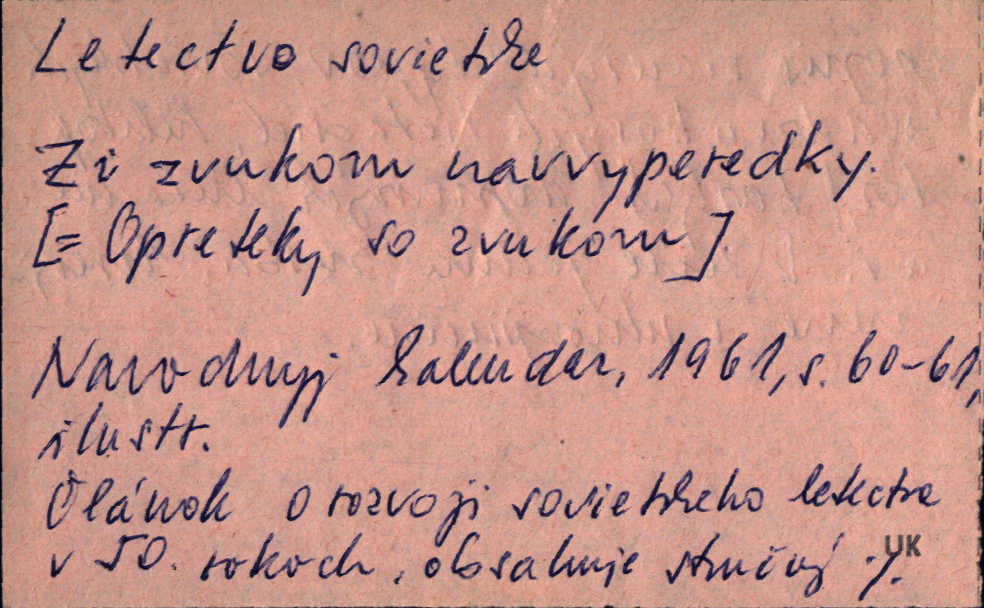 Letectvo sovietske
Zi zvukom navvyperedky.
[= Opreteky so zvukom].
Narodnyj kalendar, 1961, s. 60-61,
ilustr.
Článok o rozvoji sovietskeho letectva
v 50. rokoch, obsahuje stručný ./.
UK